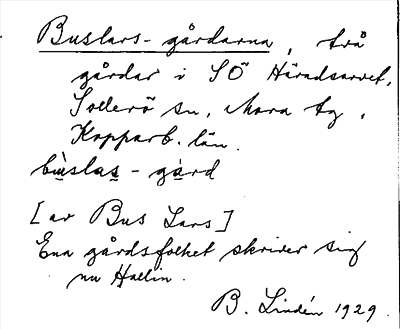 Buslars-gårdarna, två
gårdar i SÖ Häradsarvet,
Sollerö sn, Mora tg,
Kopparb. län.
bùslas-gård
[av Bus Lars]
Ena gårdsfolket skriver sig
nu Hallin.
B. Lindén 1929.